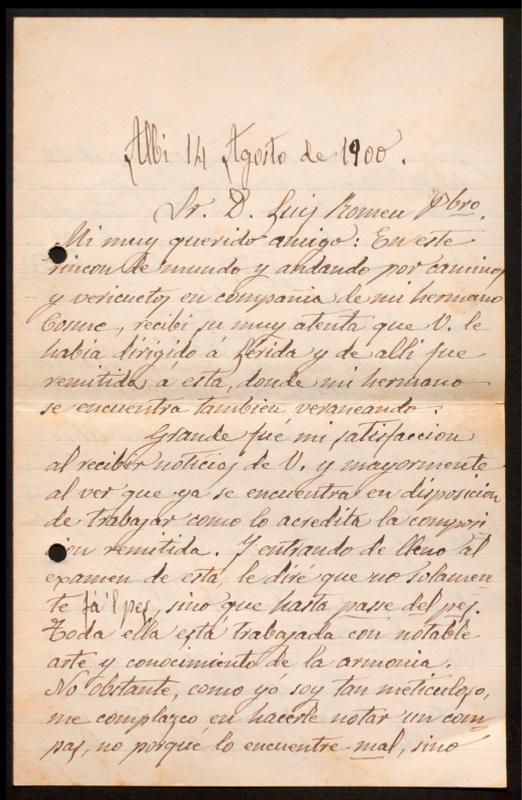 Albi 14 Agosto de 1900.
Sr. D. Luis Romeu Pbro.
Mi muy querido amigo: En este
rincon de mundo y andando por caminos
y vericuetos en compañia de mi hermano
Cosme, recibi su muy atenta que V. le
habia dirigido á Lérida y de alli fue
remitida á esta, donde mi hermano
se encuentra tambien veraneando.
Grande fué mi satisfaccion
al recibir noticias de V. y mayormente
al ver que ya se encuentra en disposicion
de trabajar como lo acredita la composi
cion remitida. Y entrando de lleno al
examen de esta, le diré que no solamen
te fá 'l pes, sino que hasta passe del pes.
Toda ella está trabajada con notable
arte y conocimiento de la armonia.
No obstante, como yó soy tan meticuloso,
me complazco en hacerle notar un com-
pas, no porque lo encuentre mal, sino